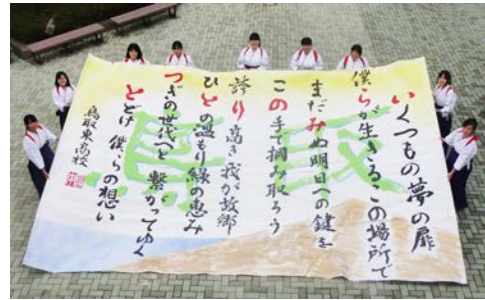 いくつもの夢の扉
僕らが生きるこの場所で
まだみぬ明日への鍵を
この手で摘み取ろう
誇り高き我が故郷
ひとの温もり緑の恵み
つぎの世代へと繋がってゆく
とどけ僕らの想い
鳥取東高校
鳥取